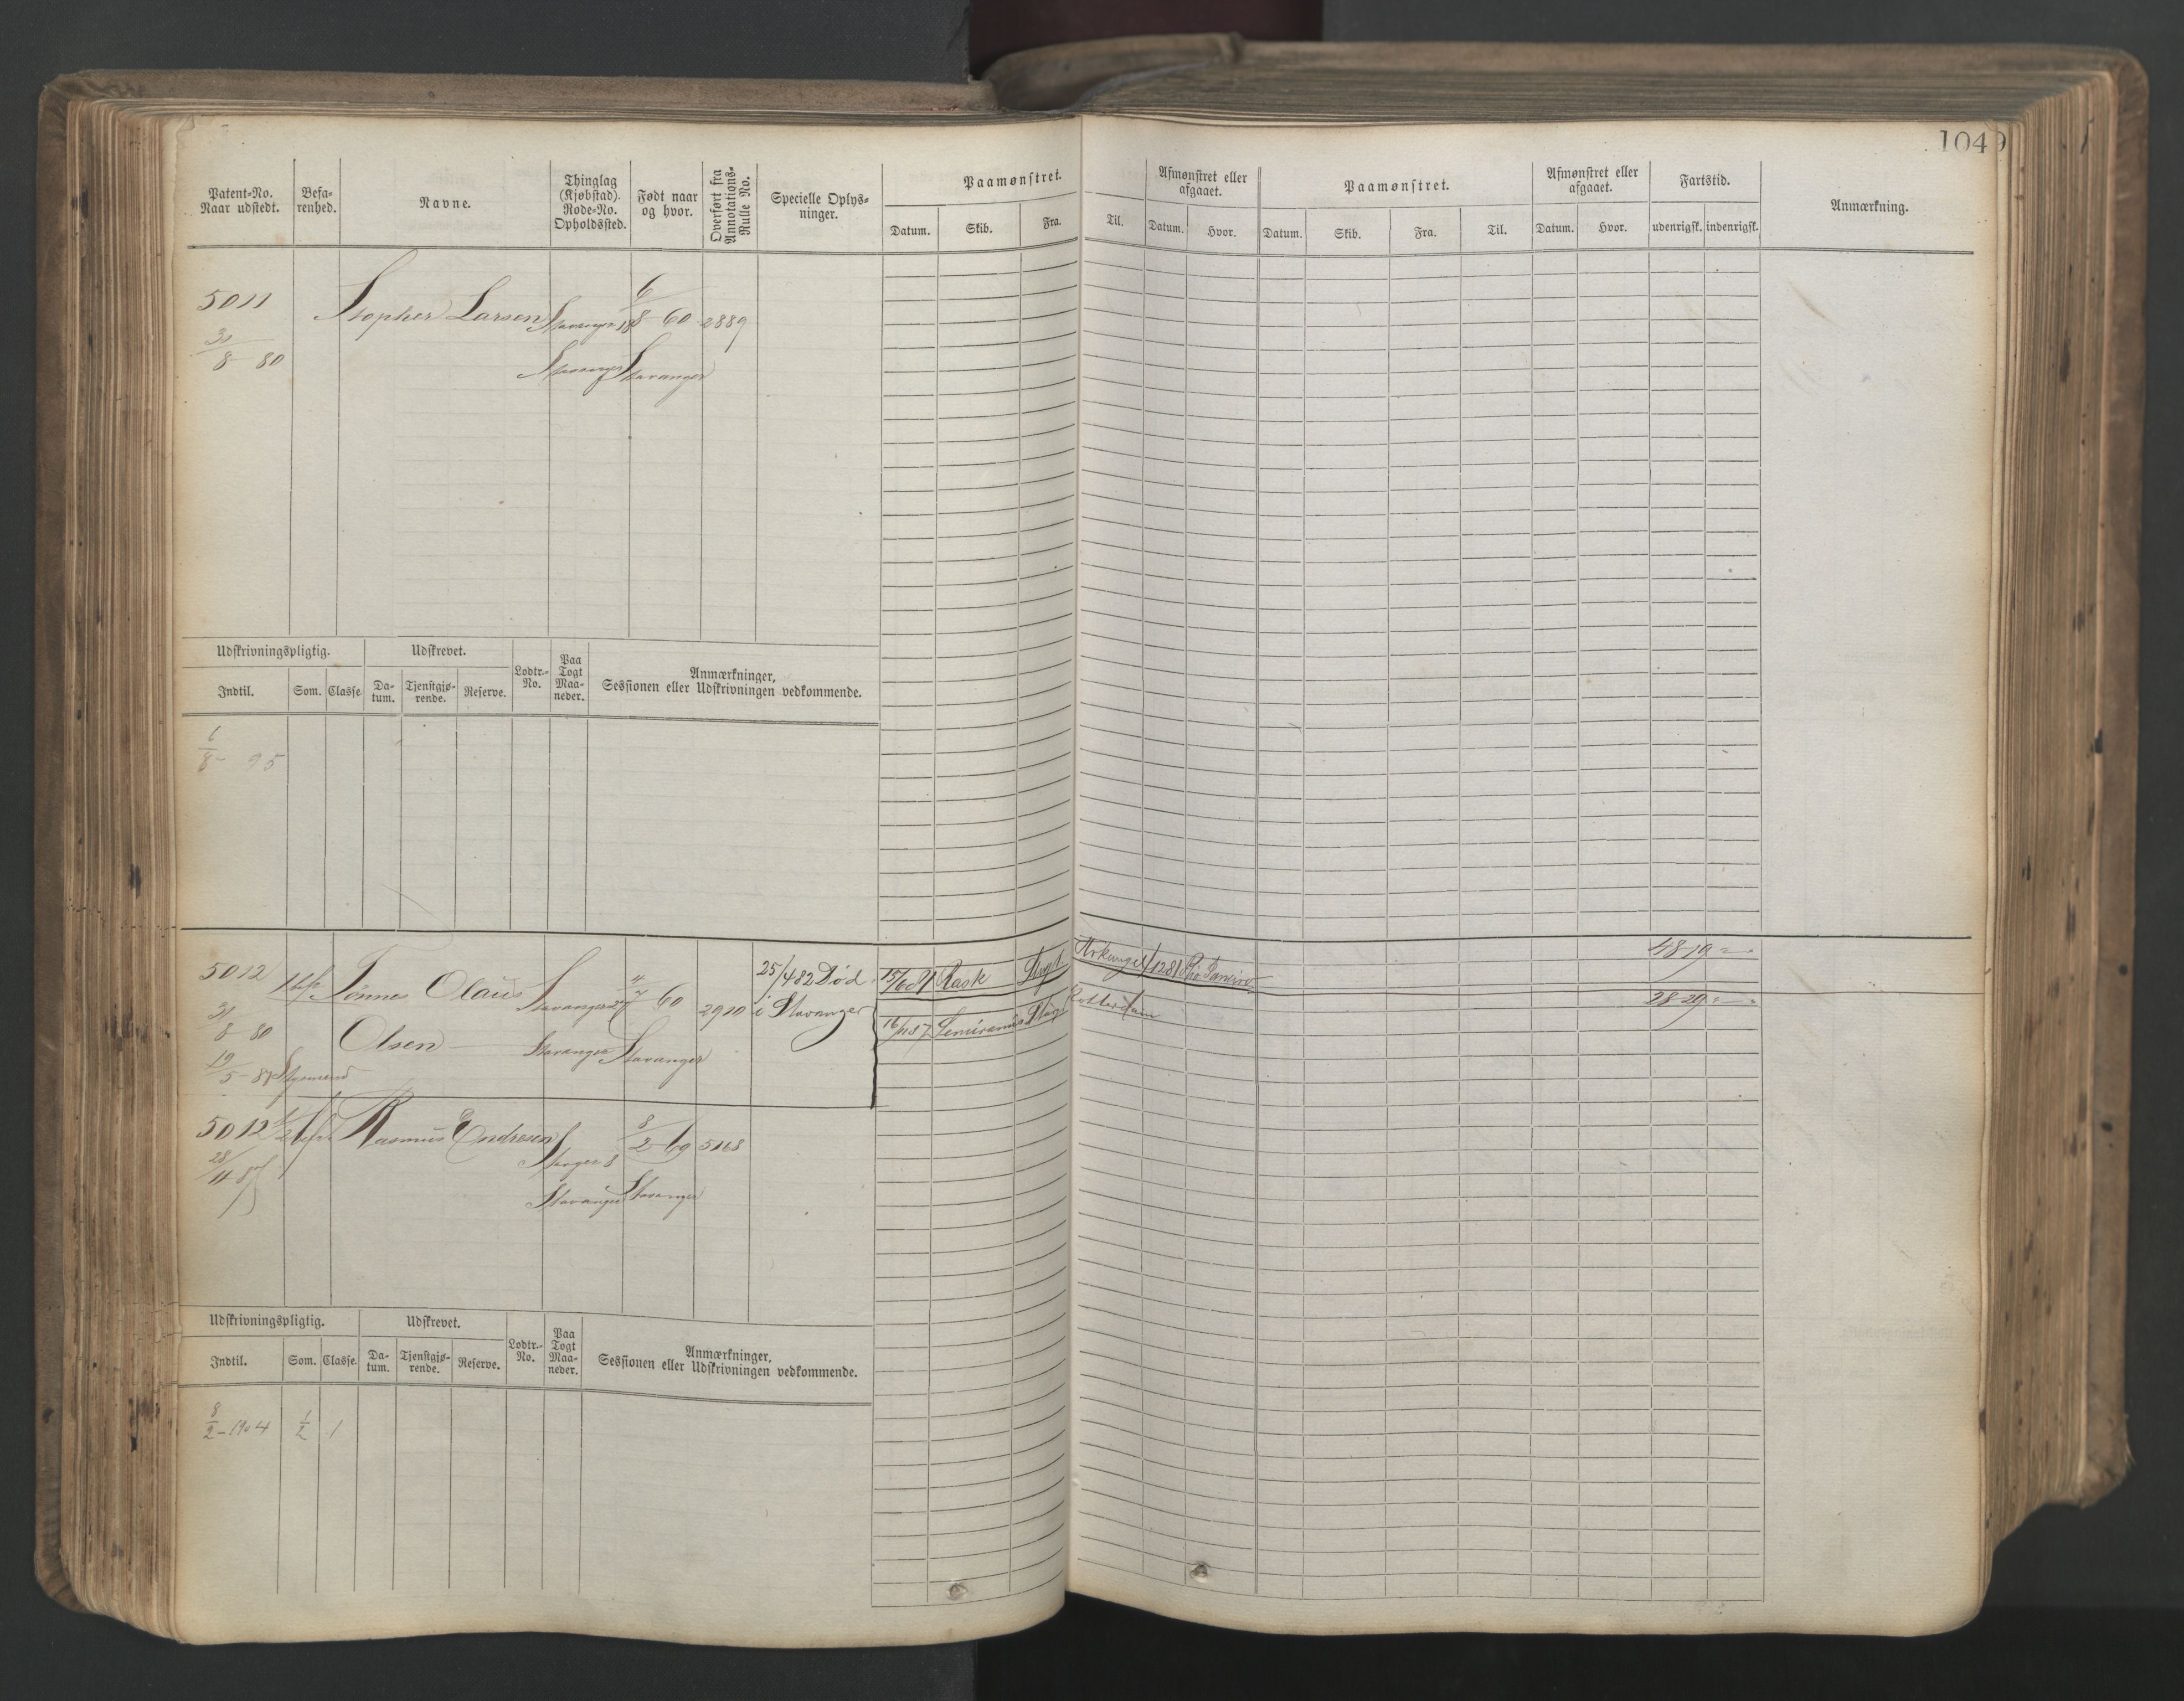 1049
Patent-No. Naar udstedt.
Befarenhed.
Navne.
Thinglag (Kjøbstad). Rode-No. Opholdssted.
Født naar og hvor.
Overført fra Annotations-Rulle No.
Specielle Oplysninger.
Paamønstret.
Datum. Skib. Fra. Til.
Afmønstret eller afgaaet.
Datum. Hvor.
Paamønstret.
Datum. Skib. Fra. Til.
Afmønstret eller afgaaet.
Datum. Hvor.
Fartstid.
udenrigsk. indenrigsk.
Anmærkning.
5011 Stopher Larsen Stavanger 18 6/8 60 2889
8 80 Stavanger Stavanger
Udskrivningspligtig. Udskrevet. Lodtr.-No. Paa Togt Maaneder. Anmærkninger, Sessionen eller Udskrivningen vedkommende.
Indtil. Som. Classe Datum. Tjenstgjørende. Reserve.
6/8 - 95
5012 Tønnes Olaus Stavanger 60 2910 25/4 82 Død 15/6 81 Rask Arkangel Rio Janeiro 48-19
31/8 80 Olsen Stavanger Stavanger i Stavanger Rotterdam 28-29
19/5 - 87
5012 1/2 Rasmus Endresen 8 8/2 69 5168
28/11 87 Stavanger Stavanger
Udskrivningspligtig. Udskrevet. Lodtr.-No. Paa Togt Maaneder. Anmærkninger, Sessionen eller Udskrivningen vedkommende.
Indtil. Som. Classe Datum. Tjenstgjørende. Reserve.
8/2 - 1904 1/2 1